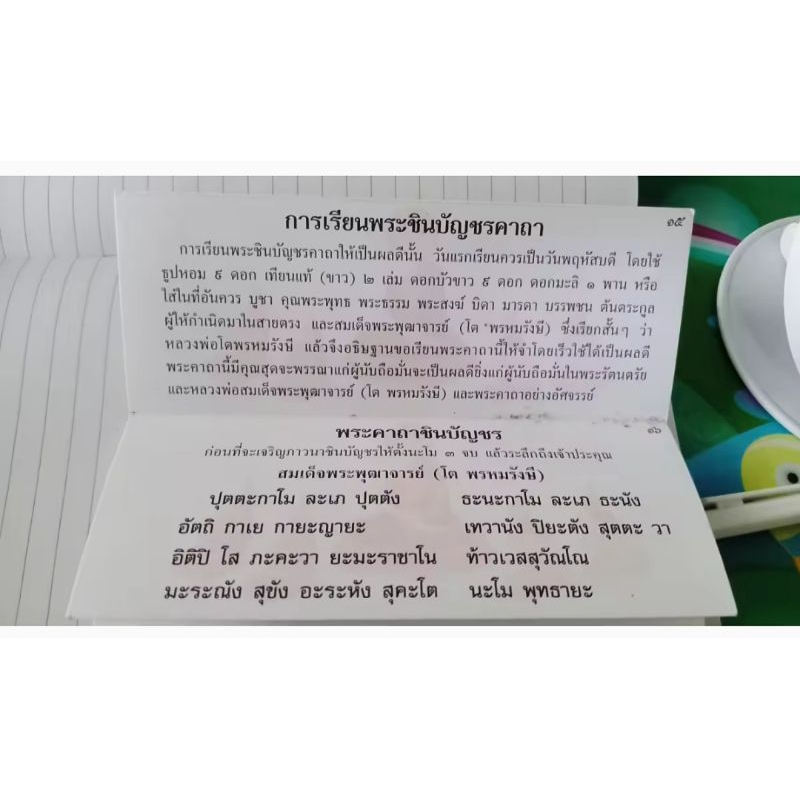 การเรียนพระชินบัญชรคาถา
๑๕
การเรียนพระชินบัญชรคาถาให้เป็นผลดีนั้น วันแรกเรียนควรเป็นวันพฤหัสบดี โดยใช้
ธูปหอม ๙ ดอก เทียนแท้ (ขาว) ๒ เล่ม ดอกบัวขาว ๙ ดอก ดอกมะลิ ๑ พาน หรือ
ใส่ในที่อันควร บูชา คุณพระพุทธ พระธรรม พระสงฆ์ บิดา มารดา บรรพชน ต้นตระกูล
ผู้ให้กำเนิดมาในสายตรง และสมเด็จพระพุฒาจารย์ (โต พรหมรังษี) ซึ่งเรียกสั้นๆ ว่า
หลวงพ่อโตพรหมรังษี แล้วจึงอธิษฐานขอเรียนพระคาถานี้ให้จำโดยเร็วใช้ได้เป็นผลดี
พระคาถานี้มีคุณสุดจะพรรณาแก่ผู้นับถือมั่นจะเป็นผลดียิ่งแก่ผู้นับถือมั่นในพระรัตนตรัย
และหลวงพ่อสมเด็จพระพุฒาจารย์ (โต พรหมรังษี) และพระคาถาอย่างอัศจรรย์
พระคาถาชินบัญชร
๑๖
ก่อนที่จะเจริญภาวนาชินบัญชรให้ตั้งนะโม ๓ จบ แล้วระลึกถึงเจ้าประคุณ
สมเด็จพระพุฒาจารย์ (โต พรหมรังษี)
ปุตตะกาโม ละเภ ปุตตัง ธะนะกาโม ละเภ ธะนัง
อัตถิ กาเย กายะญายะ เทวานัง ปิยะตัง สุตตะ วา
อิติปิ โส ภะคะวา ยะมะราชาโน ท้าวเวสสุวัณโณ
มะระณัง สุขัง อะระหัง สุคะโต นะโม พุทธายะ